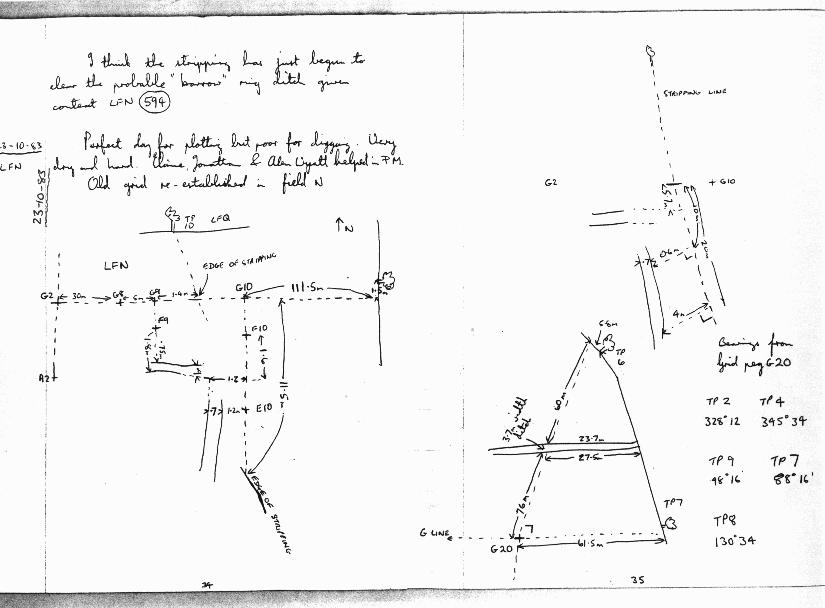 I think the stripping has just begun to
clear the probable "barrow" ring ditch given
context LFN 594
23-10-83
LFN
23-10-83
Perfect day for plotting but poor for digging. Very
dry and hard. Elaine, Jonathan & Alan Wyatt helped in P.M.
Old grid re-established in field N
TP
10
LFQ
N
LFN
EDGE OF STRIPPING
G2
30m
G8
6m
G9
1.4m
G10
111.5m
F9
F10
1.9
A2
1.2
.7
1.2m
E10
EDGE OF STRIPPING
34
STRIPPING LINE
G2
+ G10
10m
20m
0.6m
4m
6.8m
TP
6
60m
3.7m width
ditch
23.7m
27.5m
76m
TP7
G LINE
G20
61.5m
Bearings from
Grid peg G20
TP 2 TP 4
328°12 345°34
TP 9 TP 7
48°16' 88°16'
TP8
130°34
35